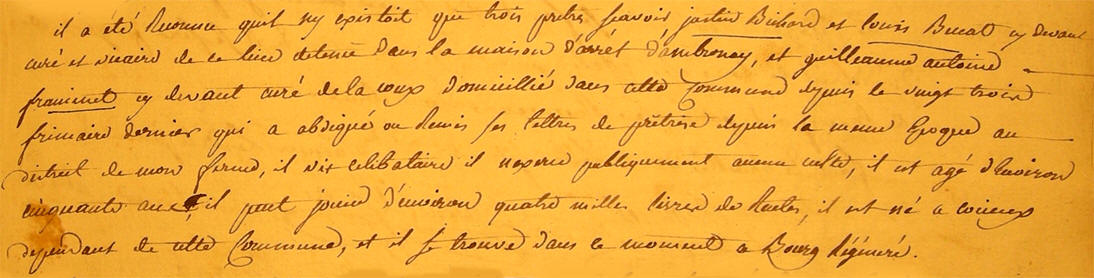 il a été Reconnu quil ny existoit que trois pretres scavoir justin Bichard et Louis Bucat cy devant
curé et vicaire de ce lieu detenu dans la maison d'arrét d'ambronay, et guilleaume antoine
framinet cy devant curé de la coux domicillié dans cette Commune depuis le vingt trois
frimaire dernier qui a abdiqué ou Remis ses lettres de prétrise depuis la meme Epoque au
district de mon ferme, il vit celibataire il nexerce publiquement aucun culte, il est agé d'Environ
cinquante ans il peut jouir d'environ quatre milles livres de Rentes, il est né a
dependant de cette Commune, et il se trouve dans ce moment a Bourg Régénéré.